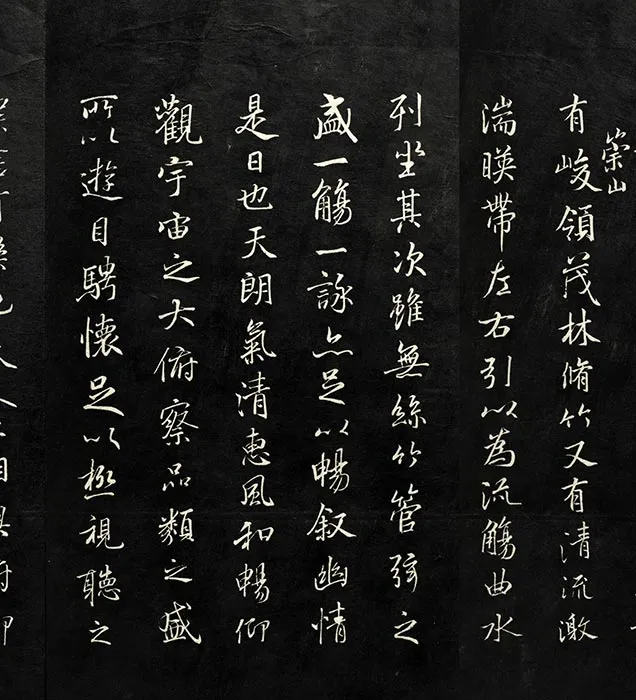 崇山
有峻領茂林脩竹又有清流激
湍暎帶左右引以為流觴曲水
列坐其次雖無絲竹管弦之
盛一觴一詠亦足以暢叙幽情
是日也天朗氣清惠風和暢仰
觀宇宙之大俯察品類之盛
所以遊目騁懷足以極視聽之